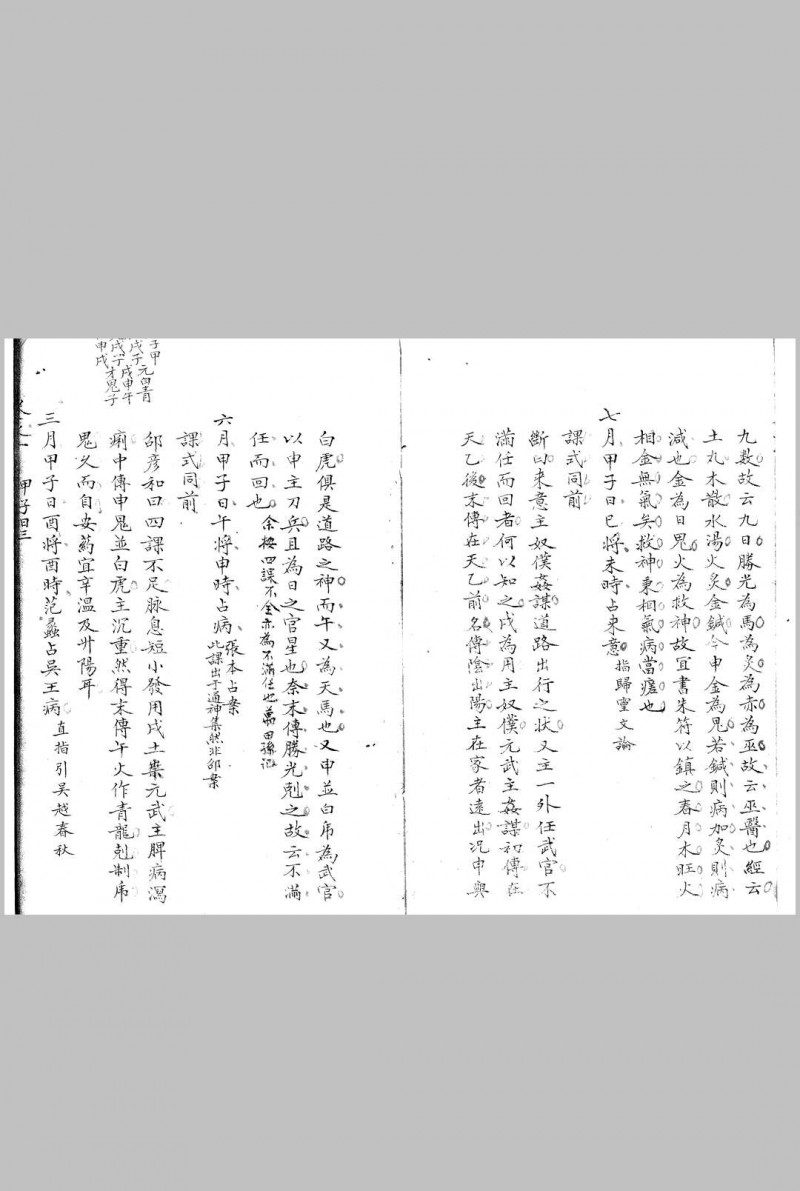 九数故云九日勝光為馬為灸為赤為巫故云巫醫也經云
土丸木散水湯火灸金鍼今申金為鬼若鍼則病加灸則病
減也金為日鬼火為救神故宜書朱符以鎮之春月木旺火
相金無氣矣救神秉相氣病當瘥也
七月甲子日巳将未時占来意 指歸靈文論
課式同前
斷曰来意主奴僕姦謀道路出行之狀又主一外任武官不
滿任而回者何以知之戌為用主奴僕元武主姦謀初傳在
天乙後末傳在天乙前名傳陰出陽主在家者遠出况申與
白虎俱是道路之神而午又為天馬也又申並白虎為武官
以申主刀兵且為日之官星也奈末傳勝光剋之故云不滿
任而回也 余按四課不全亦為不滿任也
六月甲子日午将申時占病 張本占案
此課出于通神集然非邵案
課式同前
邵彦和曰四課不足脉息短小發用戌土乗元武主脾病瀉
痢中傳申鬼並白虎主沉重然得末傳午火作青龍剋制虎
鬼久而自安葯宜辛温及升陽耳
三月甲子日酉将酉時范蠡占吴王病 直指引吴越春秋
子甲
戌子 元白青
戌子 戌申午
申戌 才鬼子
甲子 四三